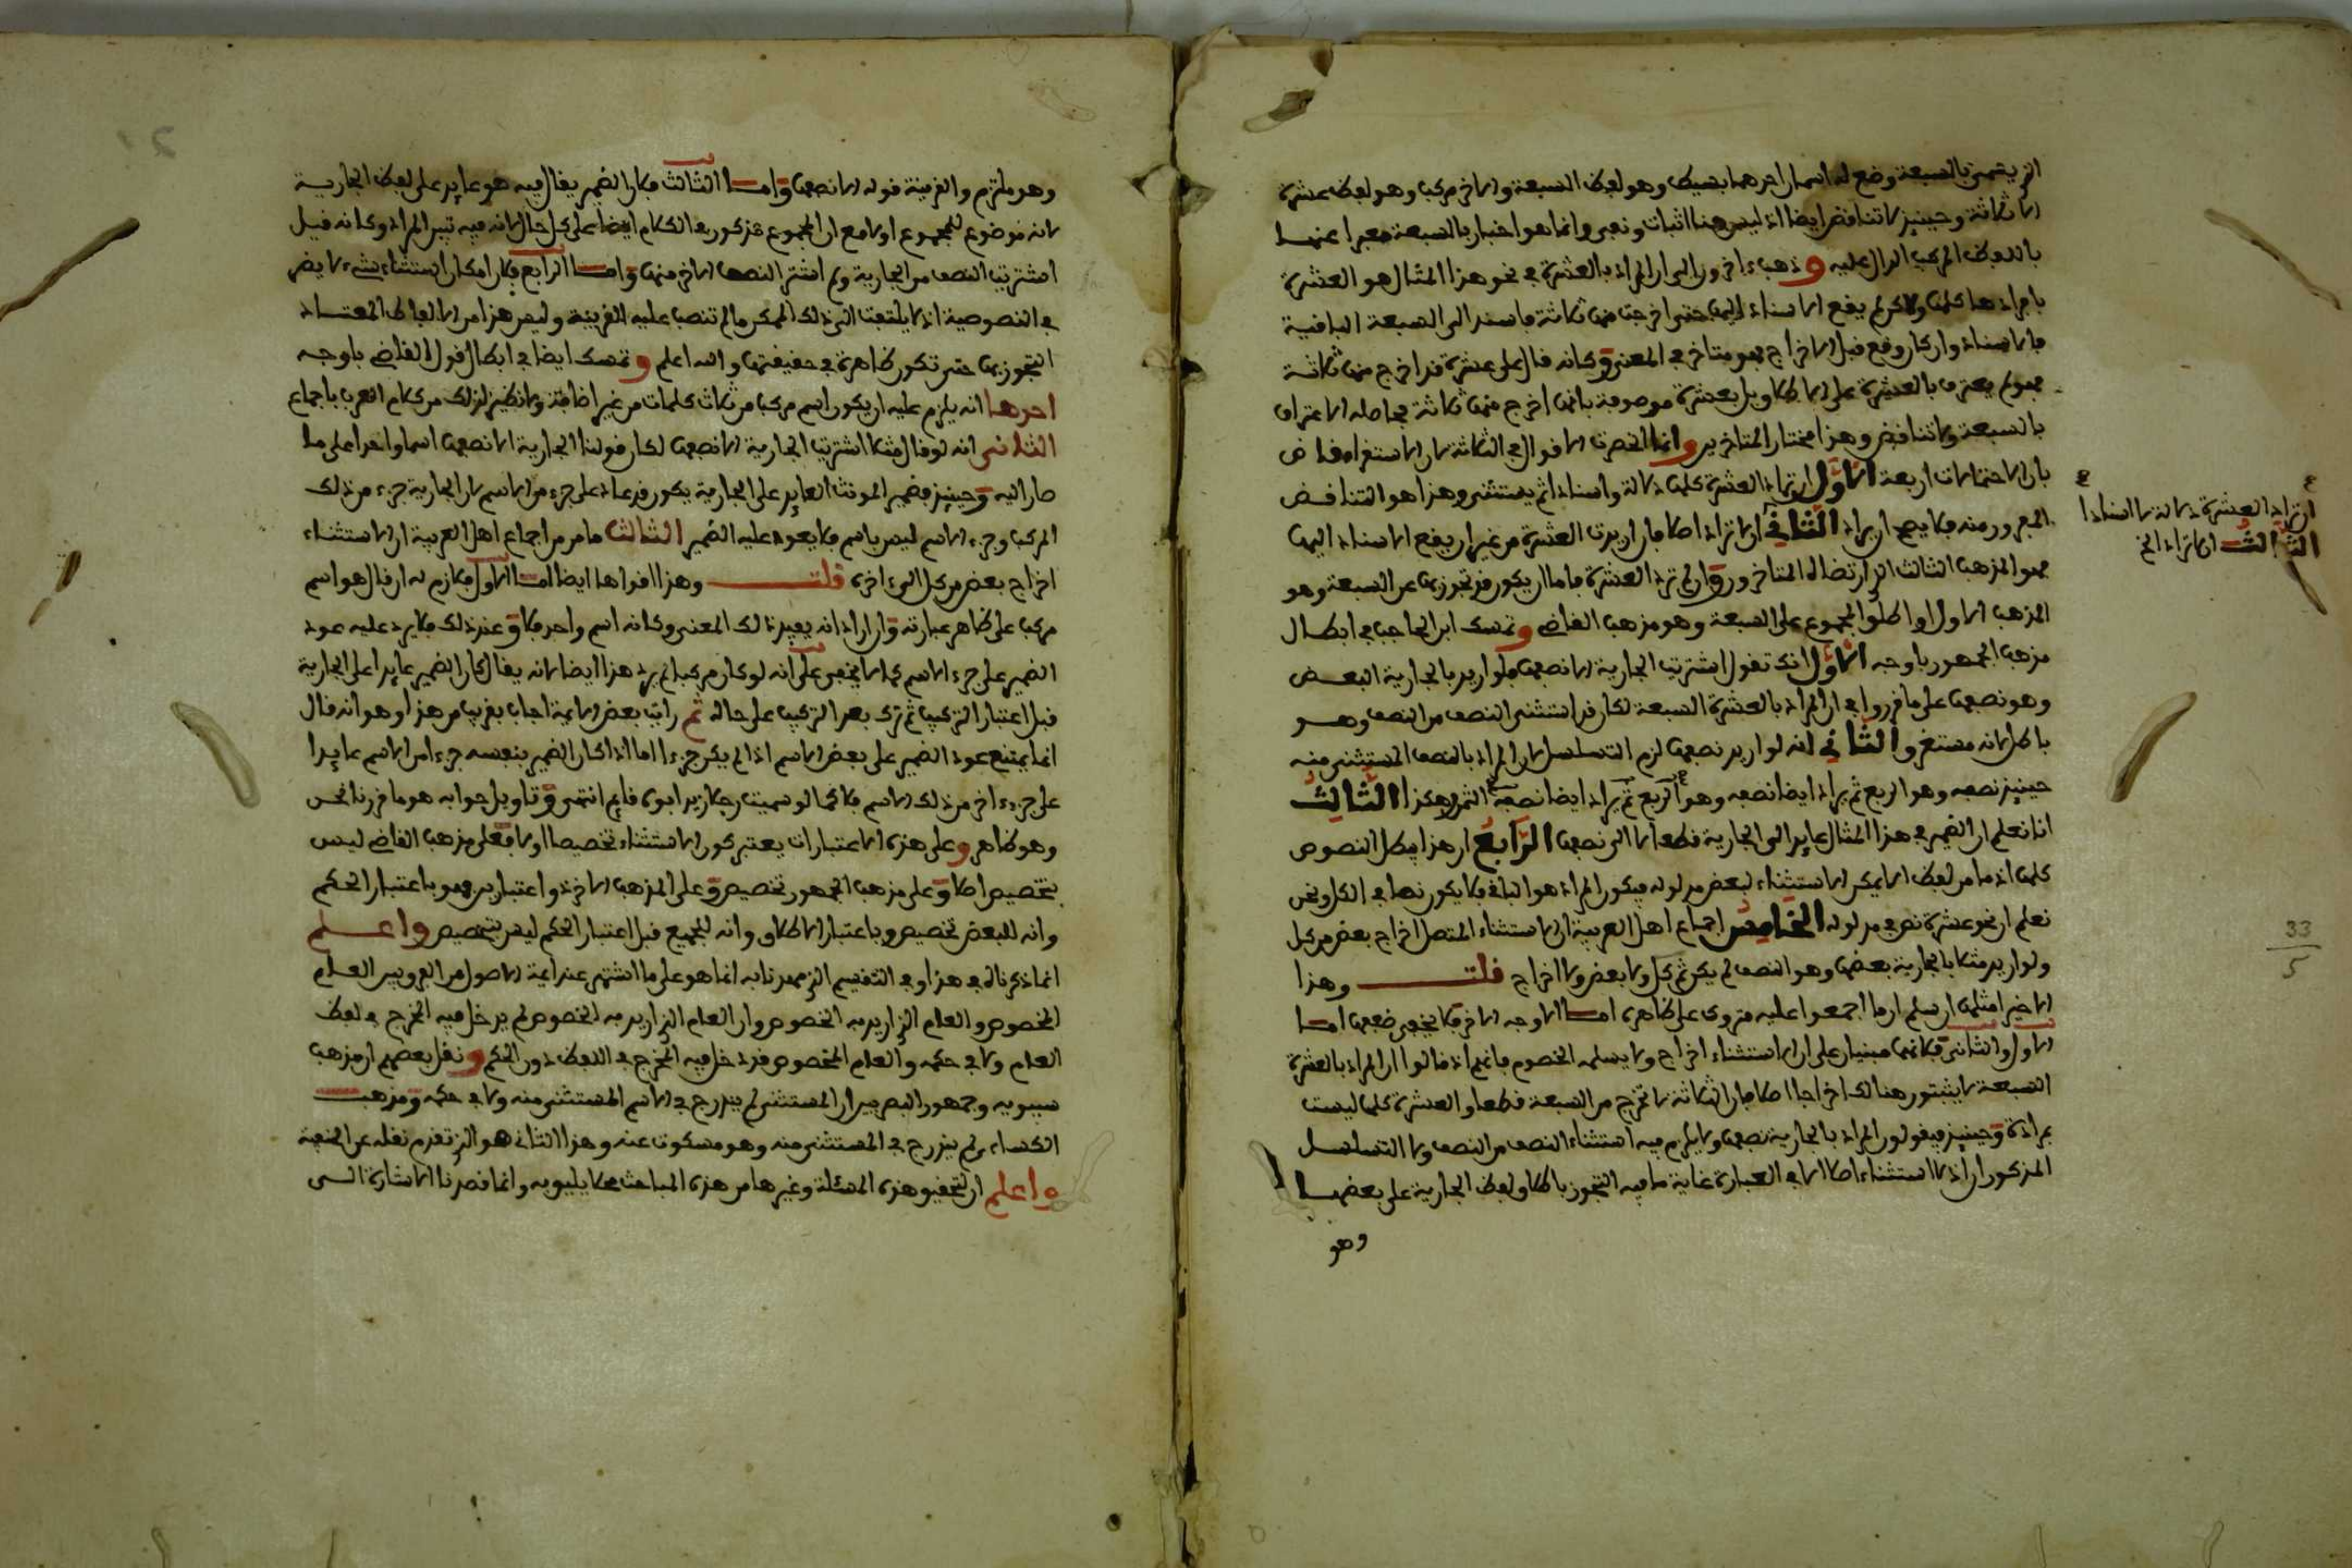 الذي يتميز بالسبعة وضع له اسمان احدهما بسيط وهو لفظ السبعة والاخر مركب وهو لفظ عشرة
الا ثلاثة وحينئذ لا تناقض ايضا اذ ليس هنا اثبات ونفي وانما هو اخبار بالسبعة معبرا عنها
باللفظ المركب الدال عليه وذهب اخرون الى ان المراد بالعشرة في نحو هذا المثال هو العشرة
بافرادها كلها ولاكن لم يقع الاسناد اليها حتى اخرجت منها ثلاثة فاسند الى السبعة الباقية
فالاسناد وان كان وقع قبل الاخراج فهو متاخر في المعنى وكانه قال علي عشرة قد اخرج منها ثلاثة
فهو لم يعترف بالعشرة على الاطلاق بل بعشرة موصوفة بانها اخرج منها ثلاثة فحاصله الاعتراف
بالسبعة ولا تناقض وهذا مختار المتاخرين وانما انحصرت الاقوال في الثلاثة لان الاستقراء قاض
بان الاحتمالات اربعة الاول ان تراد العشرة كلها دلالة واسنادا ثم يستثنى وهذا هو التناقض
المفرور منه فلا يصح ان يراد الثاني ان لا تراد اصلا فان اريدت العشرة من غير ان يقع الاسناد اليها
فهو المذهب الثالث الذي ارتضاه المتاخرون وان لم ترد العشرة فاما ان يكون قد تجوز بها عن السبعة وهو
المذهب الاول او اطلق المجموع على السبعة وهو مذهب القاضي وتمسك ابن الحاجب في ابطال
مذهب الجمهور باوجه الاول انك تقول اشتريت الجارية الا نصفها فلو اريد بالجارية البعض
وهو نصفها على ما قرروا في ان المراد بالعشرة السبعة لكان قد استثنى النصف من النصف وهو
باطل لانه مستغرق الثاني انه لو اريد نصفها لزم التسلسل لان المراد بالنصف المستثنى منه
حينئذ نصفه وهو الربع ثم يراد ايضا نصفه وهو الربع ثم يراد ايضا نصفه الثمن وهكذا الثالث
انا نعلم ان الضمير في هذا المثال عايد الى الجارية قطعا لا الى نصفها الرابع ان هذا يبطل النصوص
كلها اذ ما من لفظ الا يمكن الاستثناء لبعض مدلوله فيكون المراد هو الباقي فلا يكون نصا في الكل ونحن
نعلم ان نحو عشرة نص في مدلوله الخامس اجماع اهل العربية ان الاستثناء المتصل اخراج بعض من كل
ولو اريد مثلا بالجارية بعضها وهو النصف لم يكن ثم كل ولا بعض ولا اخراج قلت وهذا
الاخير امثلها ان سلم ان ما اجمعوا عليه متروك على ظاهره اما الاوجه الاخر فلا يخفى ضعفها اما
الاول والثاني فلانهما مبنيان على ان الاستثناء اخراج ولا يسلمه الخصوم فانهم اذ قالوا ان المراد بالعشرة
السبعة لا يثبتون هنالك اخراجا اصلا فان الثلاثة لا تخرج من السبعة قطعا والعشرة كلها ليست
مرادة وحينئذ فيقولون المراد بالجارية نصفها ولا يلزم فيه استثناء النصف من النصف ولا التسلسل
المذكوران اذ لا استثناء اصلا الا في العبارة غاية ما فيه التجوز باطلاق لفظ الجارية على بعضها
وهو
ان تراد العشرة دلالة لا اسنادا
الثالث ان لا تراد الخ
33
5
وهو ملتزم والقرينة قوله الا نصفها واما الثالث فلان الضمير يقال فيه هو عايد على لفظ الجارية
لانه موضوع للمجموع اولا مع ان المجموع مذكور في الكلام ايضا على كل حال لانه فيه تبين المراد وكانه قيل
اشتريت النصف من الجارية ولم اشتر النصف الاخر منها واما الرابع فلان امكان استثناء شيء لا يضر
في النصوصية اذ لا يلتفت الى ذلك الممكن ما لم تنصب عليه القرينة وليس هذا من الالفاظ المعتاد
التجوز بها حتى تكون ظاهرة في حقيقتها والله اعلم وتمسك ايضا في ابطال قول القاضي باوجه
احدها انه يلزم عليه ان يكون اسم مركب من ثلاث كلمات من غير اضافة ولا نظير لذلك من كلام العرب باجماع
الثاني انه لو قال مثلا اشتريت الجارية الا نصفها لكان قولنا الجارية الا نصفها اسما واحدا على ما
صار اليه وحينئذ فضمير المونث العايد على الجارية يكون قد عاد على جزء من الاسم لان الجارية جزء من ذلك
المركب وجزء الاسم ليس باسم فلا يعود عليه الضمير الثالث ما مر من اجماع اهل العربية ان الاستثناء
اخراج بعض من كل الى اخره قلت وهذا اقواها ايضا اما الاول فلازم له ان قال هو اسم
مركب على ظاهر عبارته وان اراد انه يفيد ذلك المعنى وكانه اسم واحد فلا وعند ذلك فلا يرد عليه عود
الضمير على جزء الاسم كما لا يخفى على انه لو كان مركبا لم يرد هذا ايضا لانه يقال كان الضمير عايدا على الجارية
قبل اعتبار التركيب ثم ترك بعد التركيب على حاله ثم رايت بعض الائمة اجاب بقريب من هذا وهو انه قال
انما يمتنع عود الضمير على بعض الاسم اذا لم يكن جزءا اما اذا كان الضمير بنفسه جزءا من الاسم عايدا
على جزء اخر من ذلك الاسم فلا كما لو سميت رجلا زيد ابوه قايم انتهى وتاويل جوابه هو ما قررنا نحن
وهو ظاهر وعلى هذه الاعتبارات يعتبر كون الاستثناء تخصيصا اولا فعلى مذهب القاضي ليس
بتخصيص اصلا وعلى مذهب الجمهور تخصيص وعلى المذهب الاخر ذو اعتبارين فهو باعتبار الحكم
وانه للبعض تخصيص وباعتبار الاطلاق وانه للجميع قبل اعتبار الحكم ليس بتخصيص واعلم
انما ذكرناه في هذا وفي التقسيم الذي صدرنا به انما هو على ما اشتهر عند ائمة الاصول من الفرق بين العام
المخصوص والعام الذي اريد به الخصوص وان العام الذي اريد به الخصوص لم يدخل فيه المخرج في لفظ
العام ولا في حكمه والعام المخصوص قد دخل فيه المخرج في اللفظ دون الحكم ونقل بعضهم ان مذهب
سيبويه وجمهور البصريين ان المستثنى لم يندرج في الاسم المستثنى منه ولا في حكمه ومذهب
الكساءي لم يندرج في المستثنى منه وهو مسكوت عنه وهذا الثاني هو الذي تقدم نقله عن الحنفية
واعلم ان تحقيق هذه المسئلة وغيرها من هذه المباحث محلا يليق به وانما قصدنا الاشارة الى